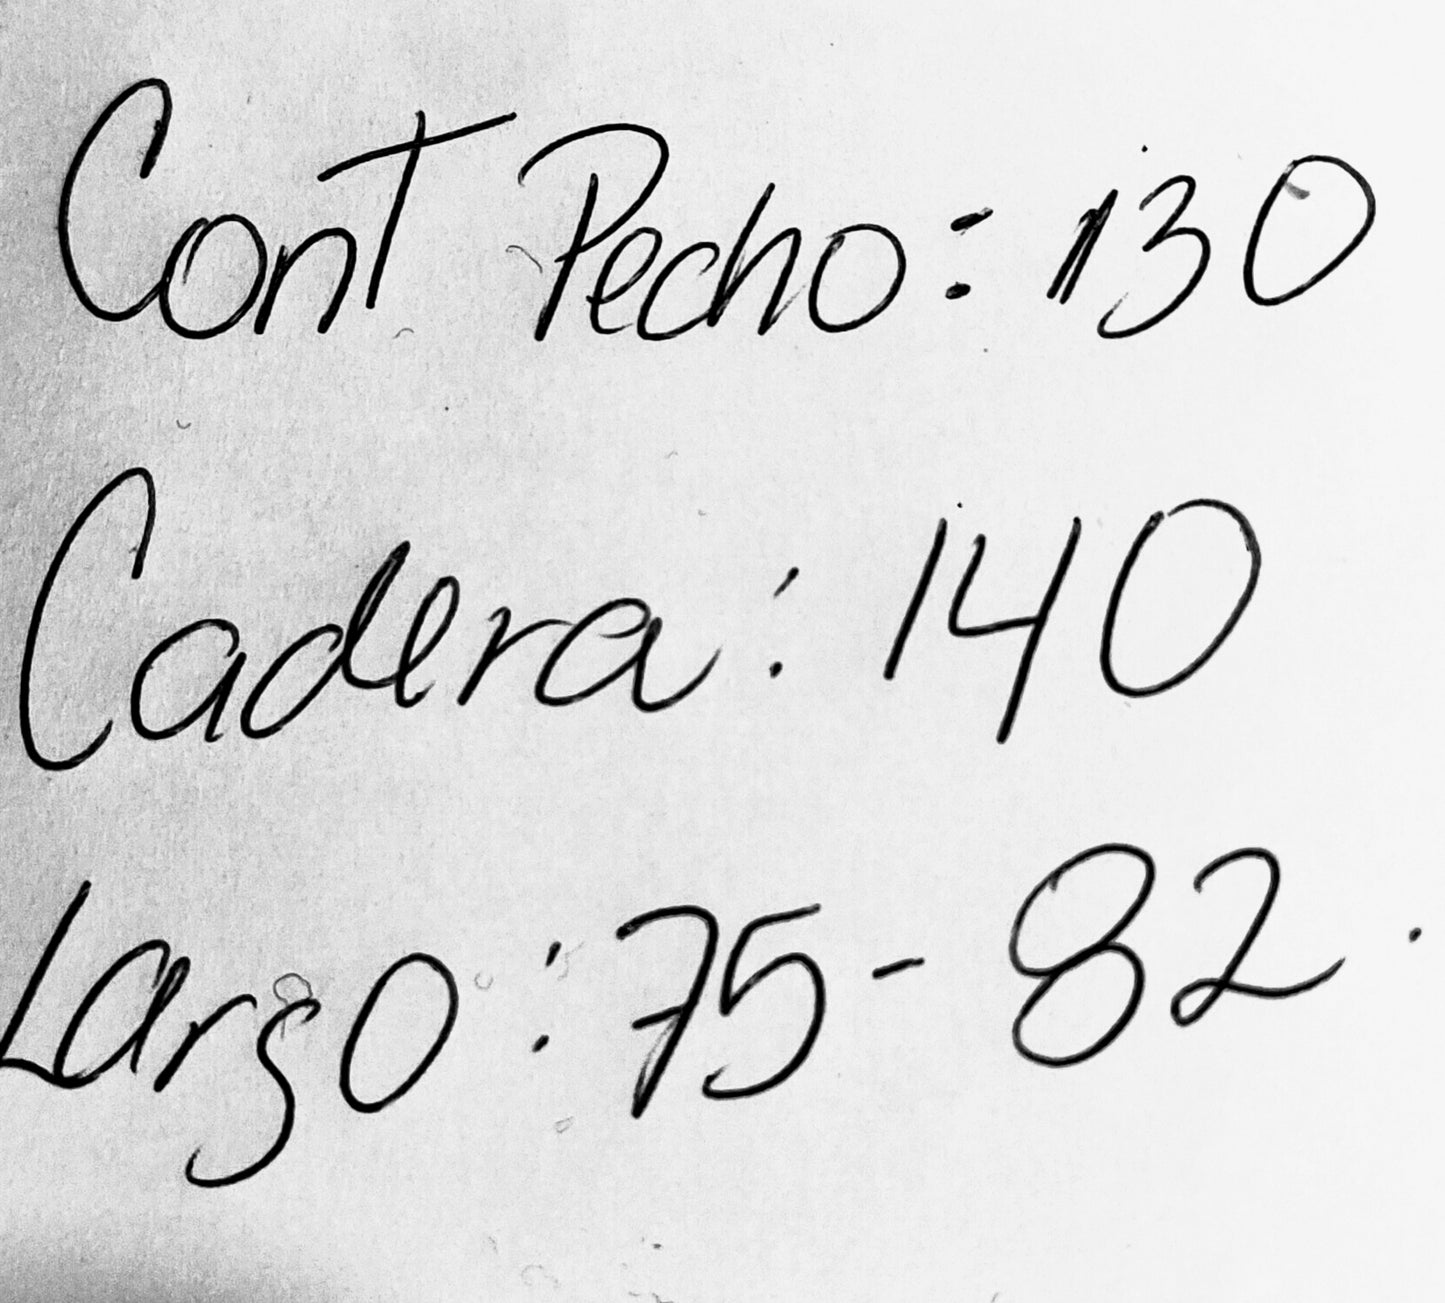 Cont Pecho: 130
Cadera: 140
Largo: 75-82.